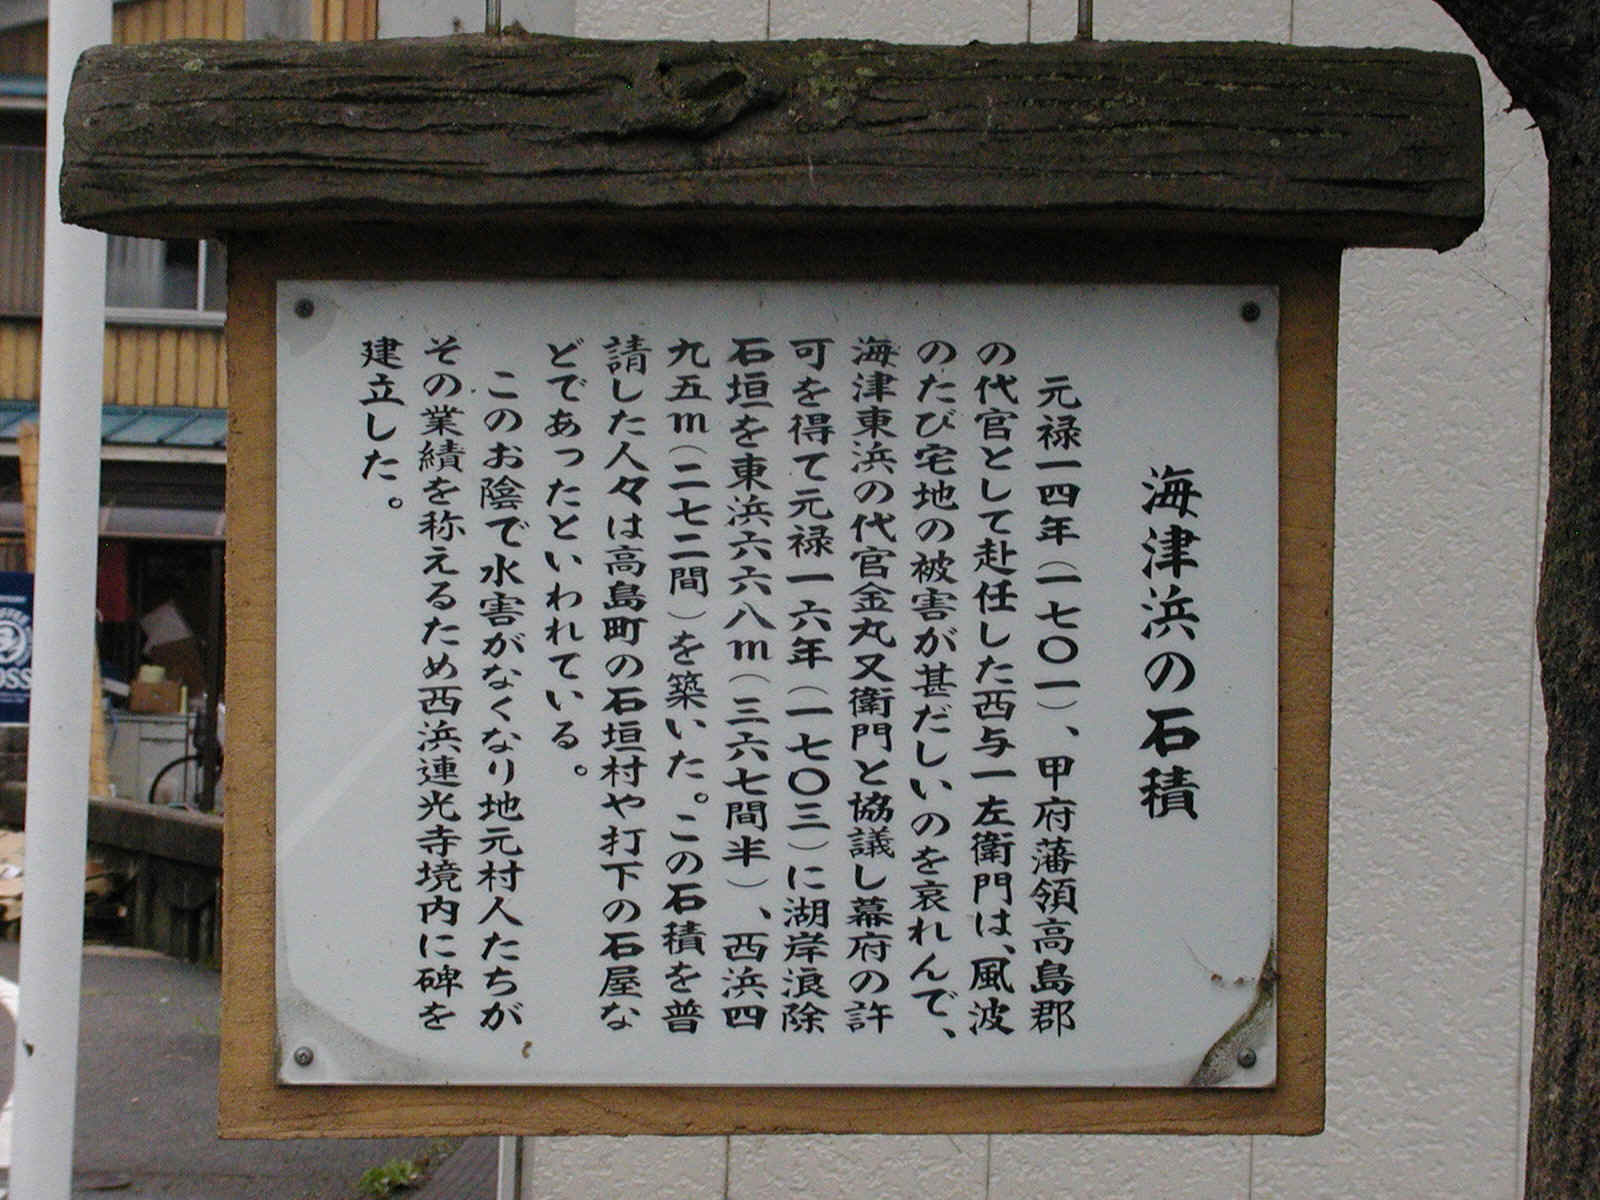 海津浜の石積
元禄一四年（一七〇一）、甲府藩領高島郡
の代官として赴任した西与一左衛門は、風波
のたび宅地の被害が甚だしいのを哀れんで、
海津東浜の代官金丸又衛門と協議し幕府の許
可を得て元禄一六年（一七〇三）に湖岸浪除
石垣を東浜六六八m（三六七間半）、西浜四
九五m（二七二間）を築いた。この石積を普
請した人々は高島町の石垣村や打下の石屋な
どであったといわれている。
このお陰で水害がなくなり地元村人たちが
その業績を称えるため西浜連光寺境内に碑を
建立した。
OSS